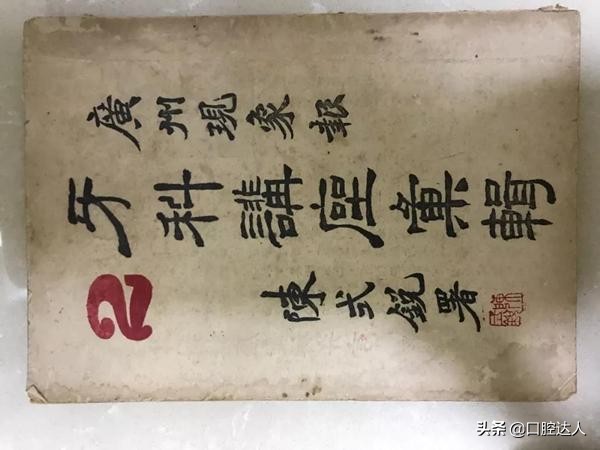 廣州現象報
牙科講座彙輯
2
陳式銳署
头条 @口腔达人